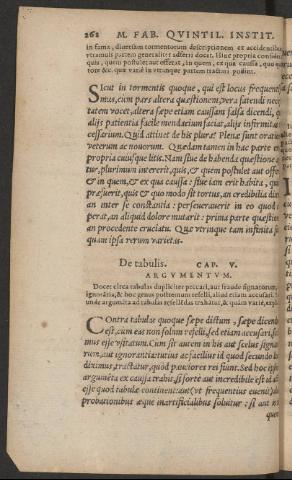 262 M. FAB. QVINTIL. INSTIT.
in fama, diuersum tormentorum descriptionem ex accidentibus
vtramuis partem generaliter asseri docet. Huc propria coniicit:
quis, quem postulet aut offerat, in quem, ex qua caussa, quo mo
tore &c. quæ variè in vtranque partem tractari possint.
SIcut in tormentis quoque, qui est locus frequentis
simus, cum pars altera quæstionem, vera fatendi neces
tatem vocet, altera sæpe etiam caussam falsa dicendi, q
aliis patientia facile mendacium faciat, aliis infirmitas
cessarium. Quid attinet de his plura? Plenæ sunt oratio
veterum ac nouorum. Quædam tamen in hac parte er
propria cuiusque litis. Nam siue de habenda quæstione
tur, plurimum intererit, quis, & quem postulet aut offe
& in quem, & ex qua caussa: siue iam erit habita, qu
præfuerit, quis & quo modo sit tortus, an credibilia dix
an inter se constantia: perseuerauerit in eo quod
perat, an aliquid dolore mutarit: prima parte quæstion
an procedente cruciatu. Quæ vtrinque tam infinita su
quàm ipsa rerum varietas.
De tabulis. CAP. V.
ARGVMENTVM.
Docet circa tabulas dupliciter peccari, aut fraude signatorum,
ignorantia, & hoc genus postremum refelli, aliud etiam accusari.
unde argumenta ad tabulas refellēdas trahātur, & quàm variè, expl
COntra tabulas quoque sæpe dictum, sæpe dicend
est, cum eas non solum refelli, sed etiam accusari, sci
mus esse vsitatum. Cum sit autem in his aut scelus signa
rum, aut ignorantia: tutius ac facilius id quod secundo lo
diximus, tractatur, quòd pauciores rei fiunt. Sed hoc ips
argumēta ex caussa trahit, si forte aut incredibile est id ac
esse quod tabulæ continent: aut (vt frequentius euenit) al
probationibus æque inartificialibus soluitur: si aut is
quem